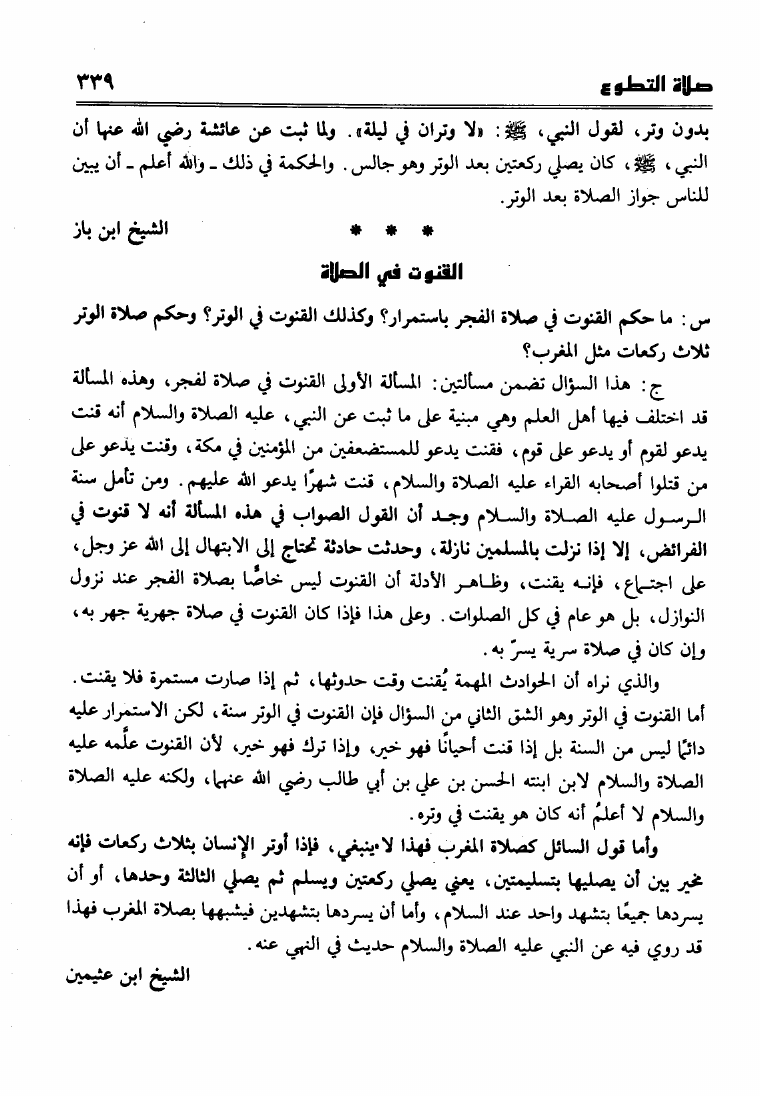 صلاة التطوع ٣٣٩
بدون وتر، لقول النبي، ﷺ: «لا وتران في ليلة». ولما ثبت عن عائشة رضي الله عنها أن
النبي، ﷺ، كان يصلي ركعتين بعد الوتر وهو جالس. والحكمة في ذلك ـ والله أعلم ـ أن يبين
للناس جواز الصلاة بعد الوتر.
الشيخ ابن باز
* * *
القنوت في الصلاة
س: ما حكم القنوت في صلاة الفجر باستمرار؟ وكذلك القنوت في الوتر؟ وحكم صلاة الوتر
ثلاث ركعات مثل المغرب؟
ج: هذا السؤال تضمن مسألتين: المسألة الأولى القنوت في صلاة لفجر، وهذه المسألة
قد اختلف فيها أهل العلم وهي مبنية على ما ثبت عن النبي، عليه الصلاة والسلام أنه قنت
يدعو لقوم أو يدعو على قوم، فقنت يدعو للمستضعفين من المؤمنين في مكة، وقنت يدعو على
من قتلوا أصحابه القراء عليه الصلاة والسلام، قنت شهرًا يدعو الله عليهم. ومن تأمل سنة
الرسول عليه الصلاة والسلام وجد أن القول الصواب في هذه المسألة أنه لا قنوت في
الفرائض، إلا إذا نزلت بالمسلمين نازلة، وحدثت حادثة تحتاج إلى الابتهال إلى الله عز وجل،
على اجتماع، فإنه يقنت، وظاهر الأدلة أن القنوت ليس خاصًّا بصلاة الفجر عند نزول
النوازل، بل هو عام في كل الصلوات. وعلى هذا فإذا كان القنوت في صلاة جهرية جهر به،
وإن كان في صلاة سرية يسرّ به.
والذي نراه أن الحوادث المهمة يُقنت وقت حدوثها، ثم إذا صارت مستمرة فلا يقنت.
أما القنوت في الوتر وهو الشق الثاني من السؤال فإن القنوت في الوتر سنة، لكن الاستمرار عليه
دائمًا ليس من السنة بل إذا قنت أحيانًا فهو خير، وإذا ترك فهو خير، لأن القنوت علَّمه عليه
الصلاة والسلام لابن ابنته الحسن بن علي بن أبي طالب رضي الله عنهما، ولكنه عليه الصلاة
والسلام لا أعلمُ أنه كان هو يقنت في وتره.
وأما قول السائل كصلاة المغرب فهذا لا ينبغي، فإذا أوتر الإنسان بثلاث ركعات فإنه
مخير بين أن يصليها بتسليمتين، يعني يصلي ركعتين ويسلم ثم يصلي الثالثة وحدها، أو أن
يسردها جميعًا بتشهد واحد عند السلام، وأما أن يسردها بتشهدين فيشبهها بصلاة المغرب فهذا
قد روي فيه عن النبي عليه الصلاة والسلام حديث في النهي عنه.
الشيخ ابن عثيمين